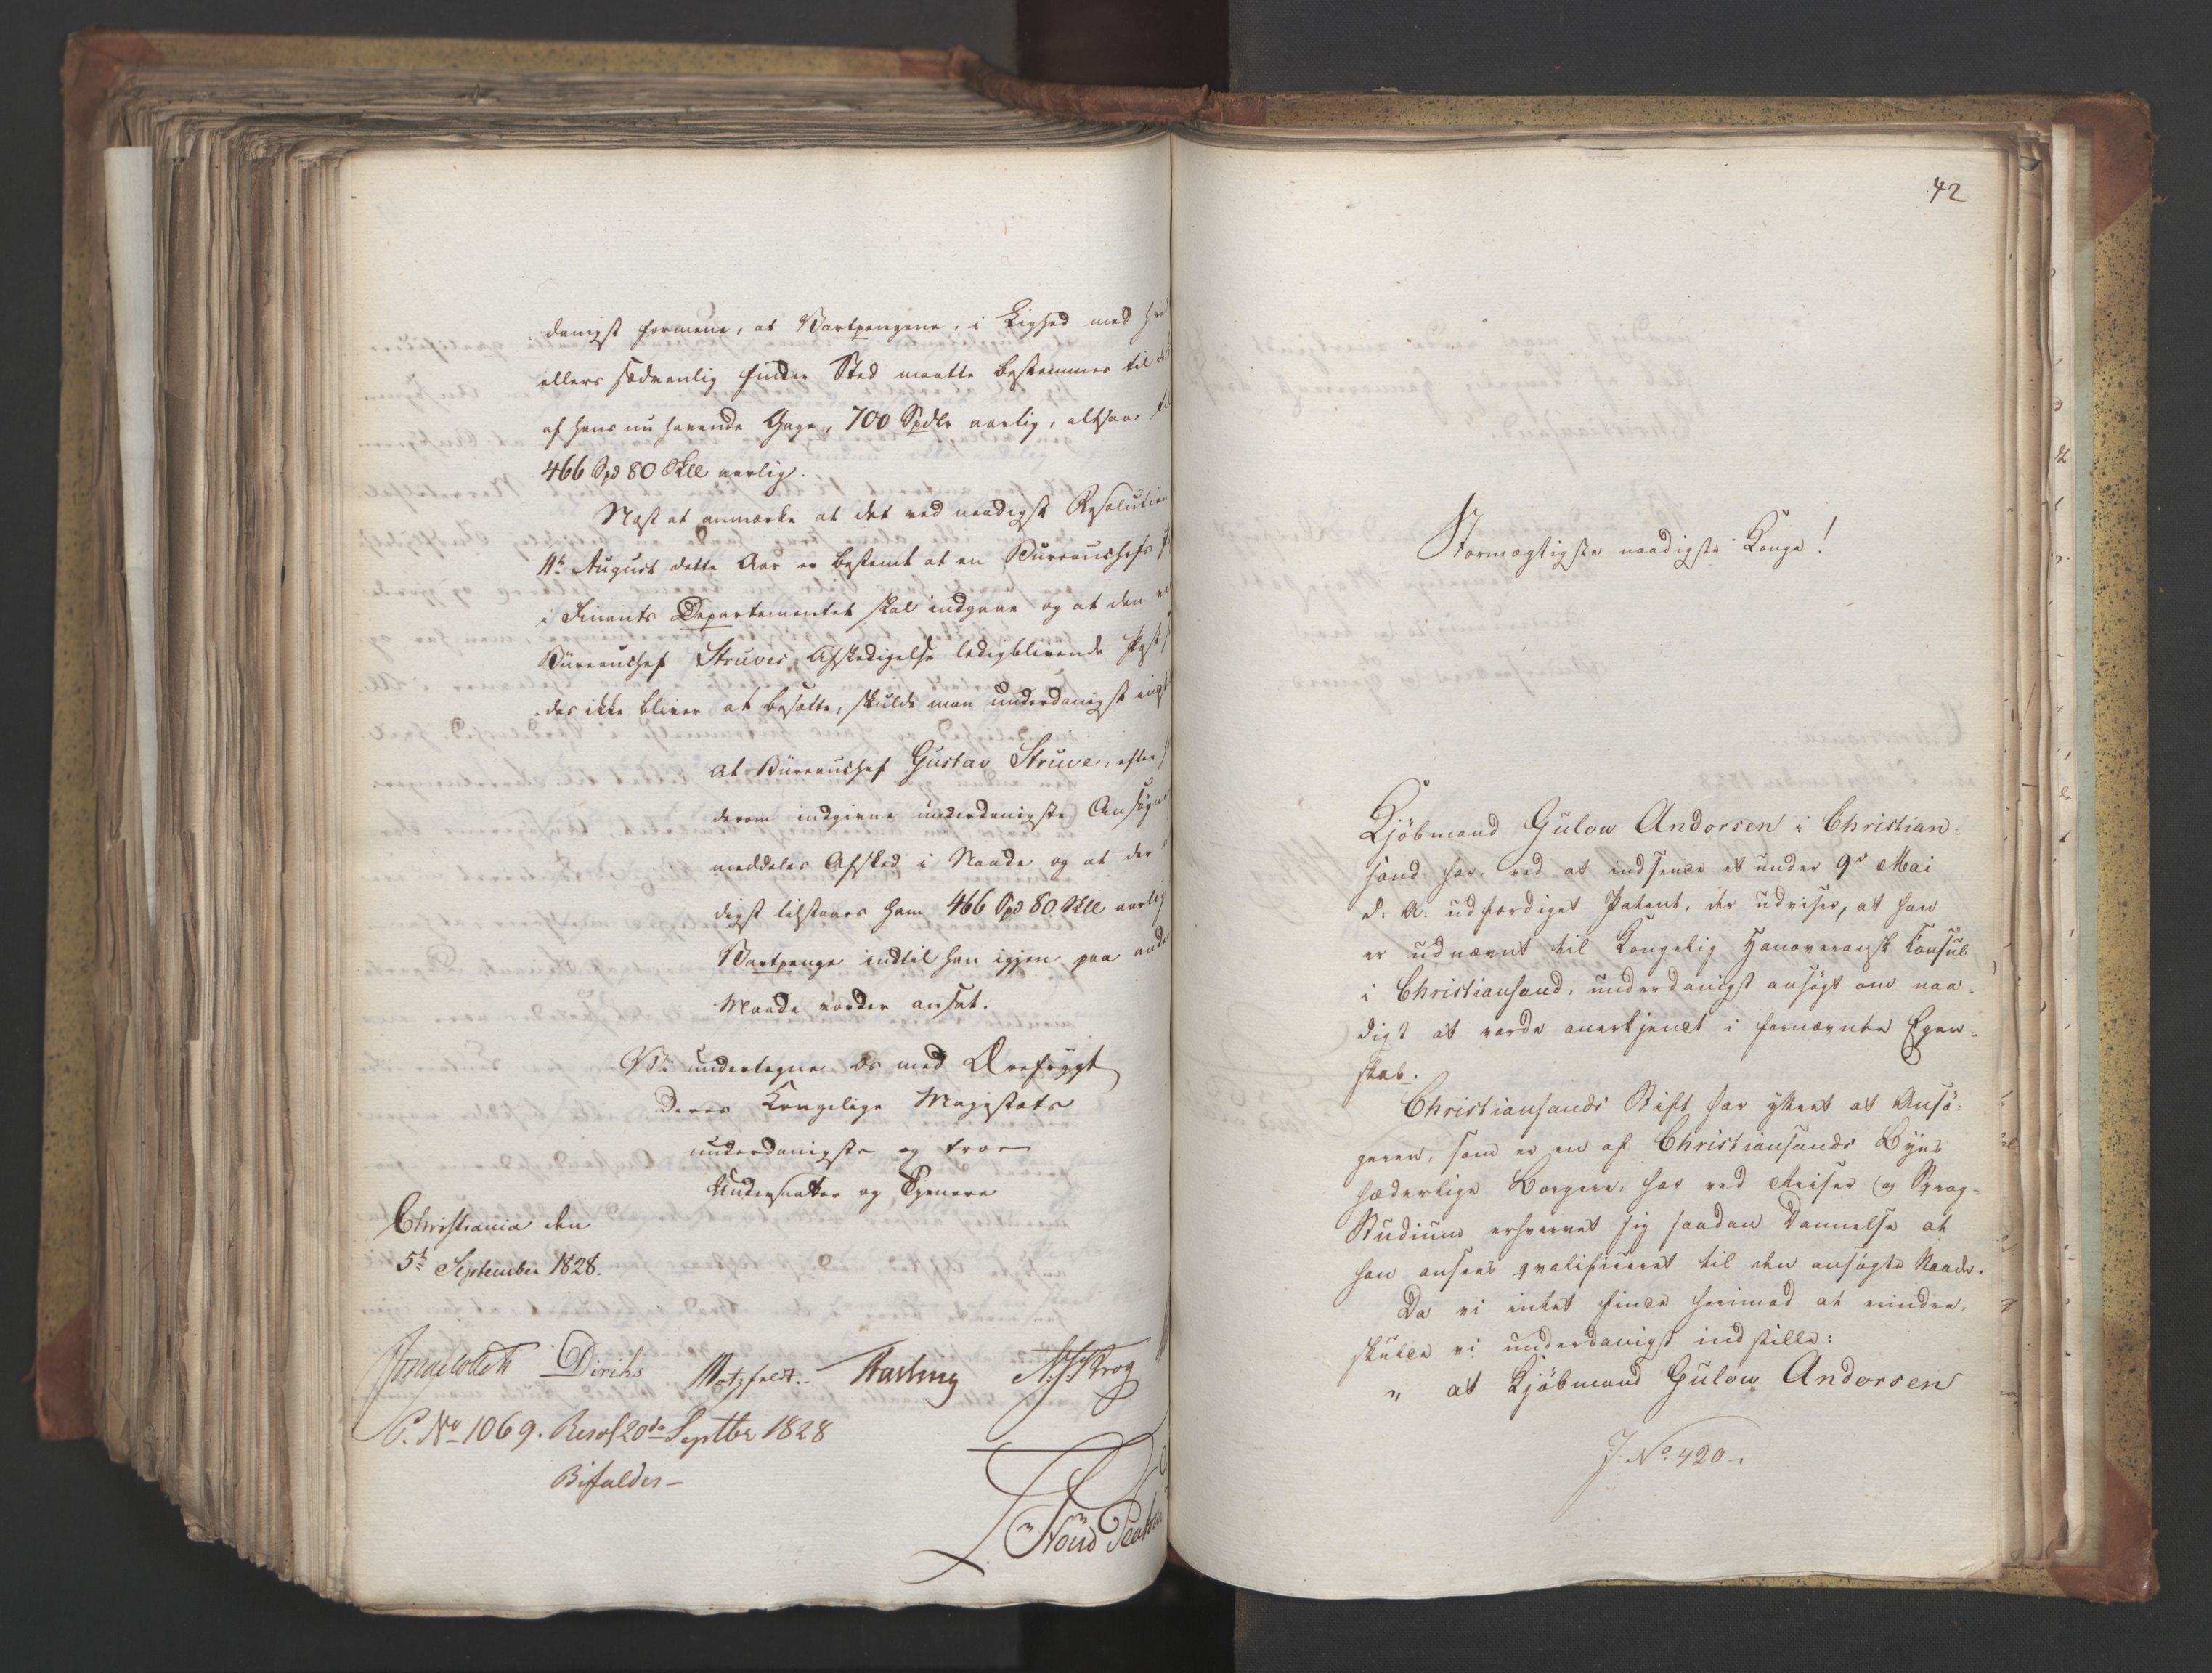 danigst formene, at Vartpengene, i Lighed med
ellers sædvanlig finder Sted maatte bestemmes til
af hans nu havende Gage, 700 Spdlr aarlig, altsaa
466 Spd 80 Skll aarlig.
Næst at anmærke at det ved naadigst Resolution
11te August dette Aar er bestemt at en Bureauchefs
i Finants Departementet skal indgaae og at den
Büreauchef Struves Afskedigelse ledigblivende Post
des ikke bliver at besætte, skulde man underdanigst
at Büreauchef Gustav Struve, efter
derom indgivne underdanigste Ansøgn
meddeles Afsked i Naade og at der
digst tilstaaes ham 466 Spd 80 Skll aarlig
Vartpenge indtil han igjen paa
Maade vorder ansat.
Vi undertegne os med Ærefrygt
Deres Kongelige Majestæts
underdanigste og troe
Undersaatter og Tjenere
Christiania den
5te September 1828.
Diriks Motzfeldt. Fasting
C. No 1069. Resol 20de Septbr 1828
Bifaldes –
42
Stormægtigste naadigste Konge!
Kjöbmand Gulow Andorsen i Christian-
sand har, ved at indsende et under 9de Mai
d. A. udfærdiget Patent, der udviser, at han
er udnævnt til Kongelig Hanoveransk Consul
i Christiansand, underdanigst ansøgt om naa-
digst at vorde anerkjendt i fornævnte Egen-
skab.
Christiansands Stift har yttret at Ansö-
geren, som er en af Christiansands Byes
hæderlige Borgere, har ved Reiser og Sprog-
Studium erhvervet sig saadan Dannelse at
han ansees qvalificeret til den ansøgte Naade.
Da vi intet finde herimod at erindre,
skulle vi underdanigst indstille:
" at Kjöbmand Gulow Andorsen
J. No. 420.